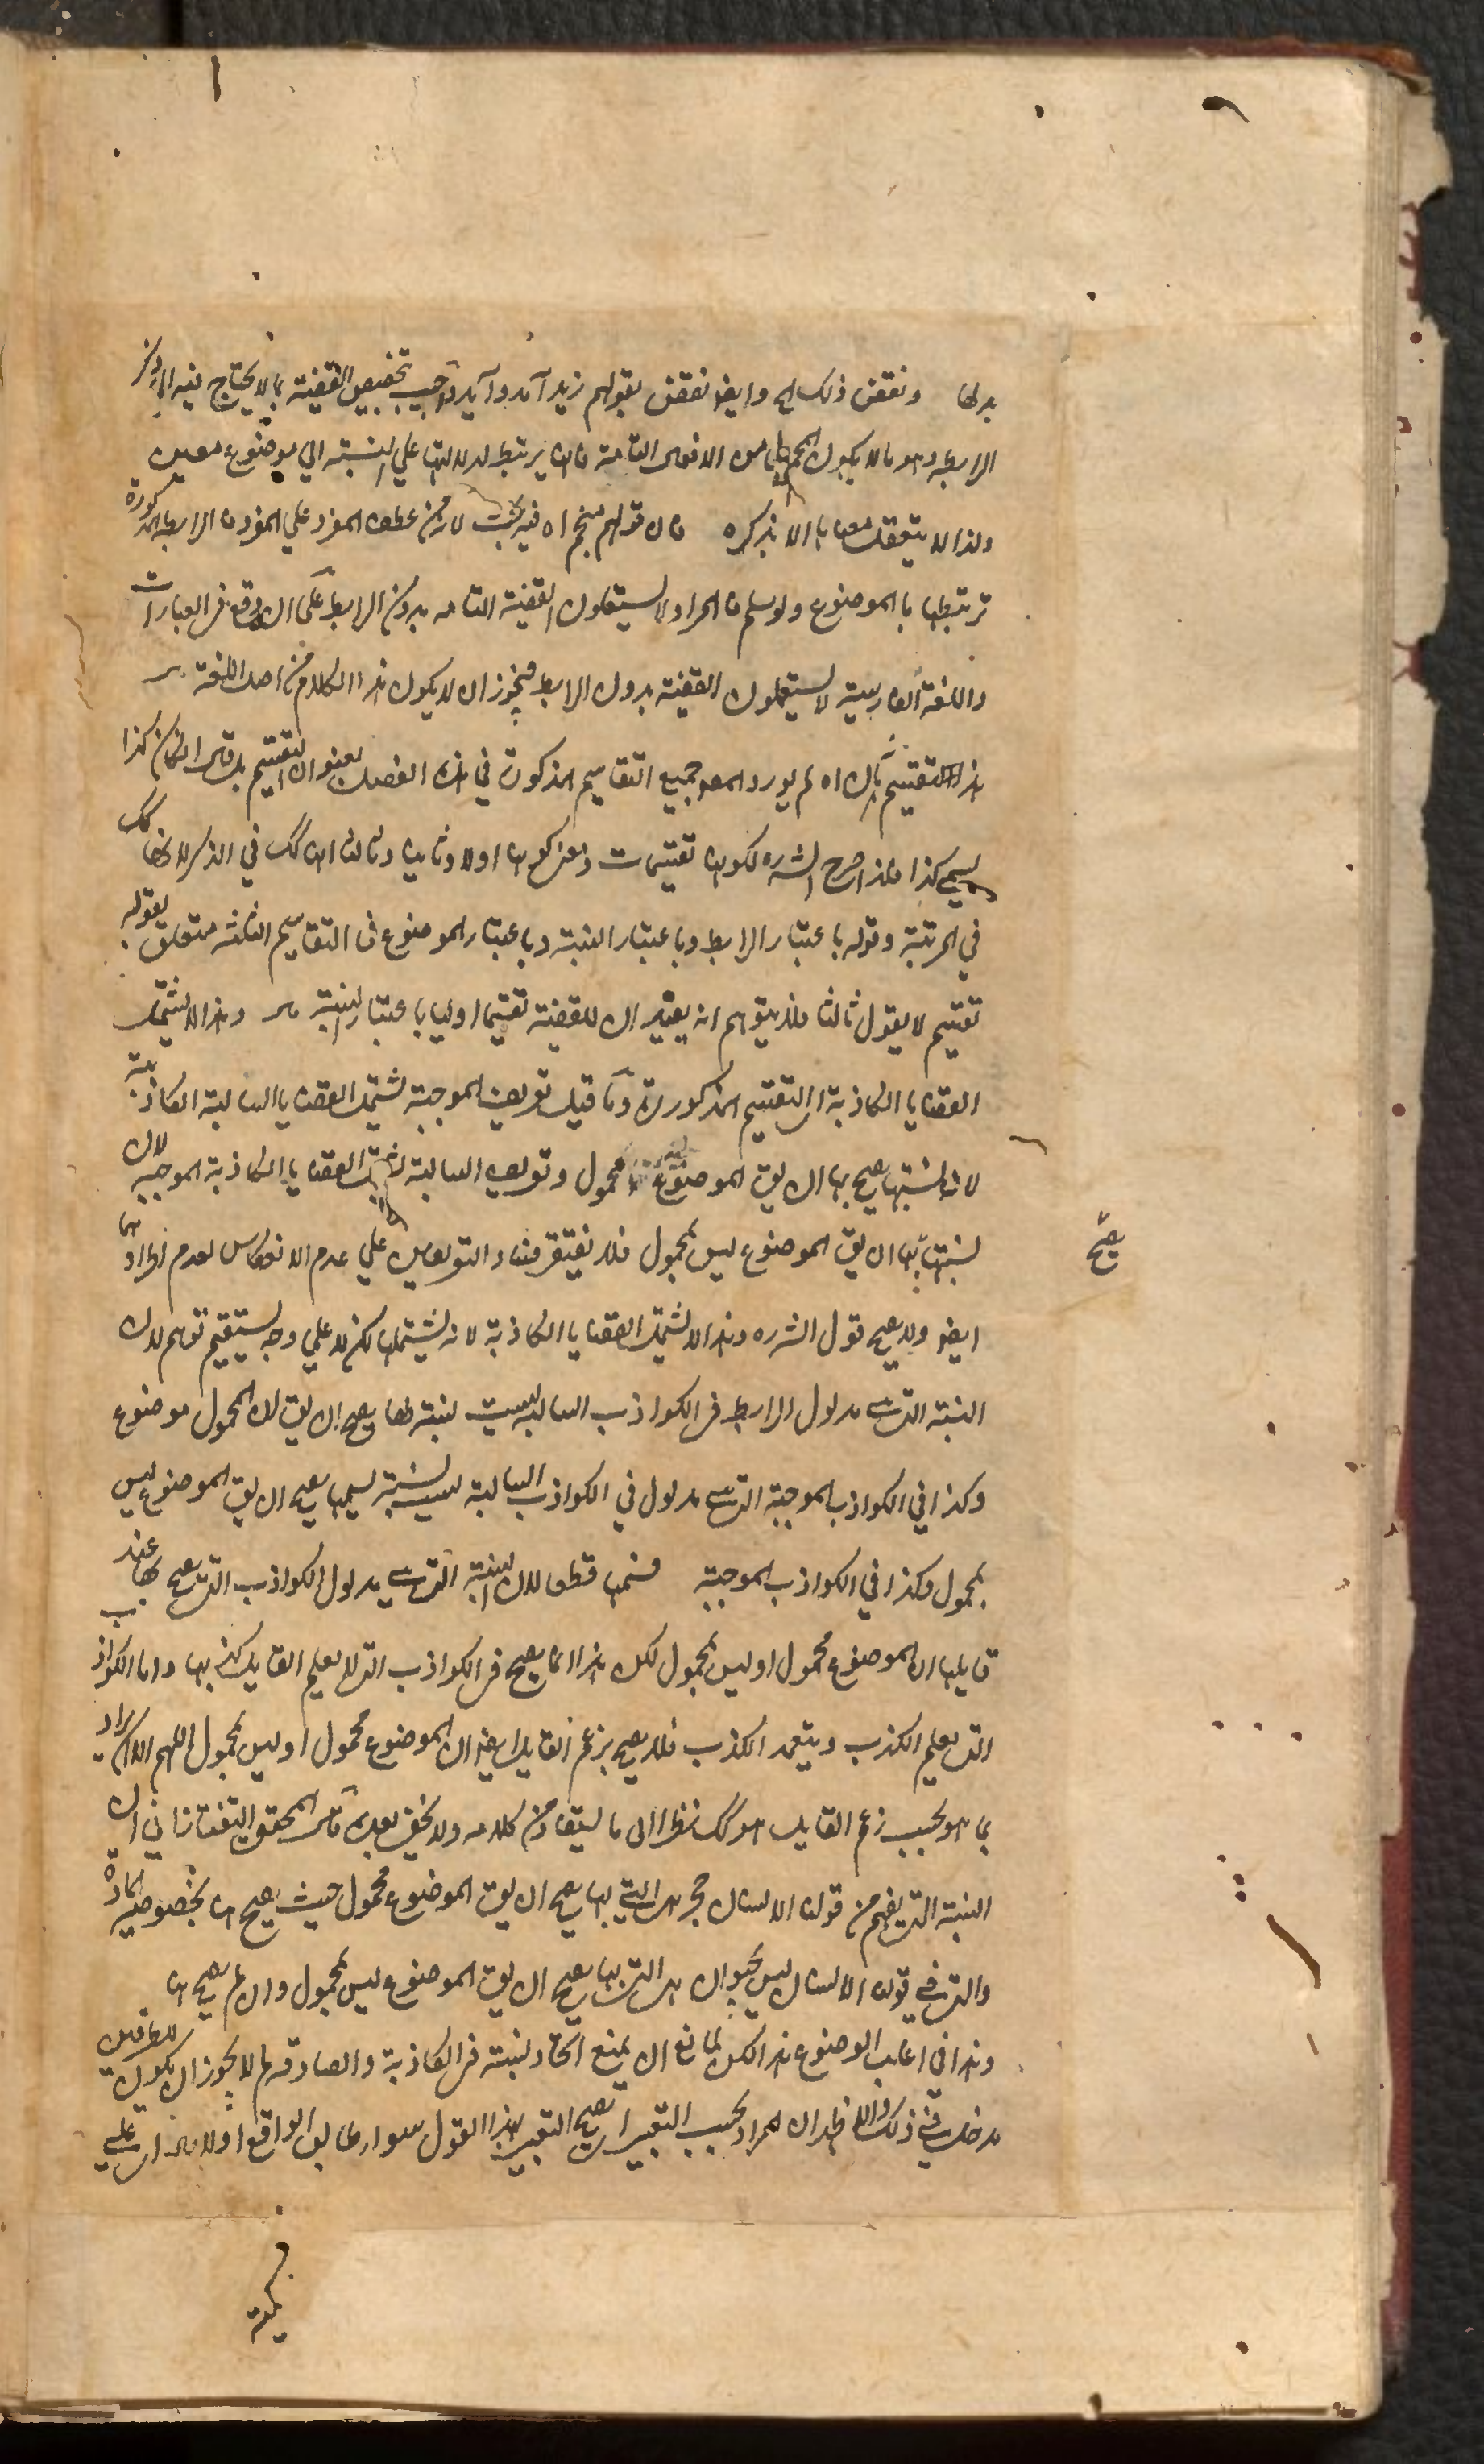 بدلها ونقض ذلك الخ وايضا نقض بقولهم زيد آمد وآيد واجيب بتخصيص القضية بما لا يحتاج فيه الى ذكر
الرابطة وهو ما لا يكون المحمول من الافعال التامة فانها يرتبط لدلالتها علي النسبة الي موضوع معين
ولذا لا يتعقل معناها الا بذكره قال قولهم منجم اه فيه بحث لانه من عطف المفرد علي المفرد فالرابطة المذكورة
ترتبطها بالموضوع ولو سلم فالمراد لا يستعملون القضية التامه بدون الرابطة علي ان وقع في العبارات
واللغة الفارسية لا يستعملون القضية بدون الرابطة فيجوز ان لا يكون هذا الكلام من اصل اللغة
هذا التقسيم ثالث اه لم يورد المص جميع التقاسيم المذكورة في هذا الفصل بعنوان التقسيم بل قال ان كان كذا
يسمى كذا فلذا صرح الشره لكونها تقسيمات ومعنى كونها اولا وثانيا وثالثا انها كك في الذكر لا انها كك
في المرتبة وقوله باعتبار الرابطة وباعتبار النسبة وباعتبار الموضوع في التقاسيم الثلثه متعلق بقوله
تقسيم لا بقول ثالث فلا يتوهم انه يفيد ان للقضية تقسيما اوليا باعتبار النسبة قال وهذا لا يشتمل
القضايا الكاذبة اى التقسيم المذكور وما قيل تعريف الموجبة يشتمل القضايا السالبة الكاذبة
لانه نسبتها يصح بها ان يق الموضوع محمول وتعريف السالبة لا القضايا الكاذبة الموجبة لان
نسبتها بها ان يق الموضوع ليس بمحمول فلا يفتقر فساد التعريفين علي عدم الانعكاس لعدم اطرادهما
يصح
ايضا ولا يصح قول الشره وهذا لا يشتمل القضايا الكاذبة لانه يشتملها لكن لا علي وجه يستقيم توهم لان
النسبة التي هى مدلول الرابطة في الكواذب السالبة ليست نسبة بها يصح ان يق ان المحمول موضوع
وكذا في الكواذب الموجبة التي هى مدلول في الكواذب السالبة ليست نسبة بها يصح ان يق الموضوع ليس
بمحمول وكذا في الكواذب الموجبة قطعا لان النسبة التي هى مدلول الكواذب التي يصح بها عند
قايلها ان الموضوع محمول او ليس بمحمول لكن هذا انما يصح في الكواذب التي لا يعلم القايل كذبها واما الكواذب
التي يعلم الكذب ويتعمد الكذب فلا يصح بزعم القايل ايضا ان الموضوع محمول او ليس بمحمول اللهم الا ان يراد
بما هو بحسب زعم القايل هو كك نظرا الى ما يستفاد من كلامه ولا يخفى بعده قال المحقق التفتازاني ان
النسبة التي يفهم من قولنا الانسان حجر هى التي بها يصح ان يق الموضوع محمول حيث يصح اها بخصوصية المادة
والتي في قولنا الانسان ليس بحيوان هى التي بها يصح ان يق الموضوع ليس بمحمول وان لم يصح ها
وهذا في اغلب الوضوع هذا لكن لمانع ان يمنع اتحاد نسبة في الكاذبة والصادقه لم لا يجوز ان يكون للطرفين
مدخل في ذلك والا ظهر ان المراد بحسب التعبير اى يصح التعبير بهذا القول سواء طابق الواقع او لا قال اى علي